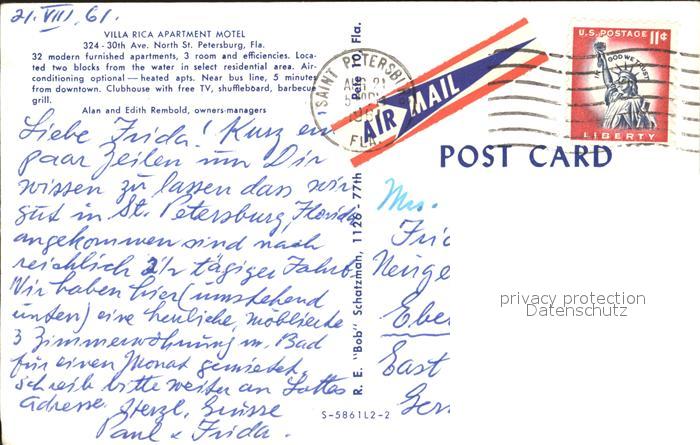 21. VIII. 61.
VILLA RICA APARTMENT MOTEL
324 - 30th Ave. North St. Petersburg, Fla.
32 modern furnished apartments, 3 room and efficiencies. Loca-
ted two blocks from the water in select residential area. Air-
conditioning optional — heated apts. Near bus line, 5 minutes
from downtown. Clubhouse with free TV, shuffleboard, barbecue
grill.
Alan and Edith Rembold, owners-managers
Liebe Frida! Kurz ein
paar Zeilen um Dir
wissen zu lassen dass wir
gut in St. Petersburg, Florida
angekommen sind nach
reichlich 2½ tägiger Fahrt.
Wir haben hier (umstehend
unten) eine herrliche, möblierte
3 Zimmerwohnung m. Bad
für einen Monat gemietet.
Schreib bitte weiter an Lottes
Adresse. Herzl. Grüsse
Paul & Frida.
R. E. "Bob" Schatzman, 1126 - 77th Pete 10, Fla.
S-5861L2-2
SAINT PETERSBU
FLA
AIR MAIL
U.S. POSTAGE 11¢
IN GOD WE TRUST
LIBERTY
POST CARD
Mrs.
Fri
Neuge
Ebe
East
Ger
privacy protection
Datenschutz